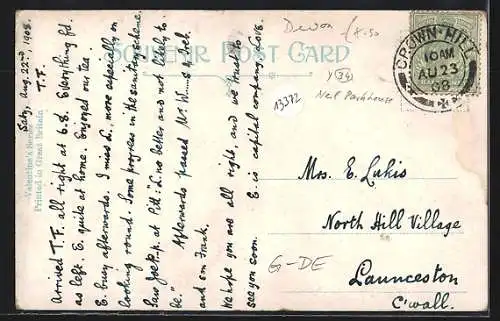 SOUVENIR POST CARD
Devon
£8.50
CROWN-HILL
10 AM
AU 23
08
Y (34)
13372
Near Packhouse
Valentine's Series
Printed in Great Britain
Saty, Aug. 22nd, 1908.
T.F.
Arrived T.F. all right at 6.8. Everything fd.
as left. E. quite at home. Enjoyed our tea.
E. busy afterwards. I miss L., more especially on
looking round. Some progress in the sanitary scheme.
Saw Joe R.p. at Pill: "L. no better and not likely to
be." Afterwards passed Mr W——s Sreh.
and son Frank.
We hope you are all right, and we trust to
see you soon. E. is capital company. Love.
Mrs. E. Lukis
North Hill Village
Launceston
C'wall.
G-DE